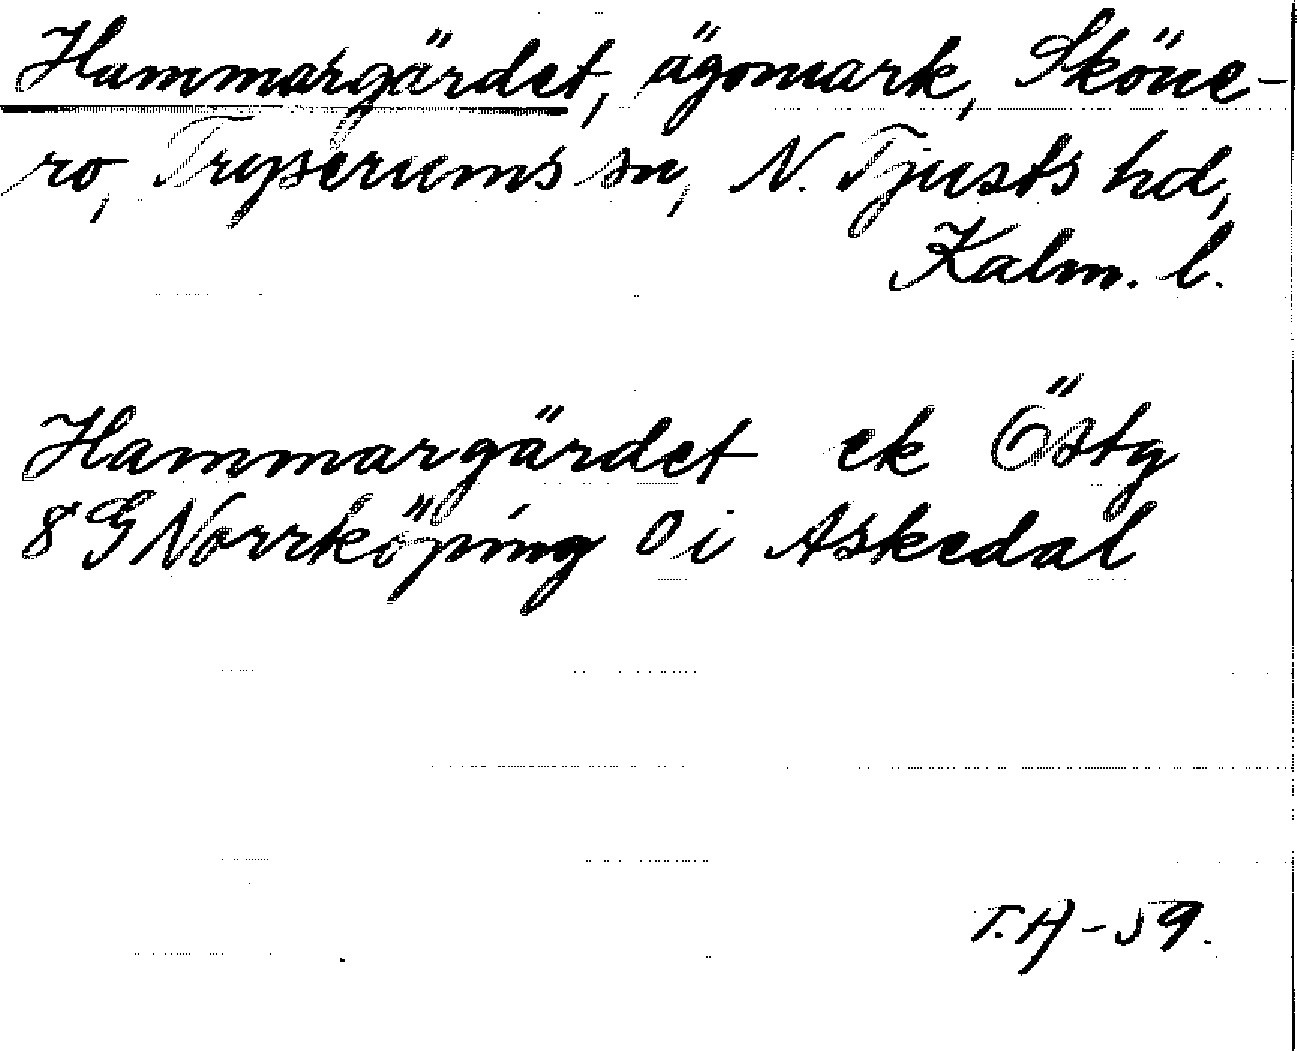 Hammargärdet, ägomark, Sköne-
ro, Tryserums sn, N. Tjusts hd,
Kalm. l.
Hammargärdet ek Östg
8 G Norrköping O i Askedal
T.H-59.